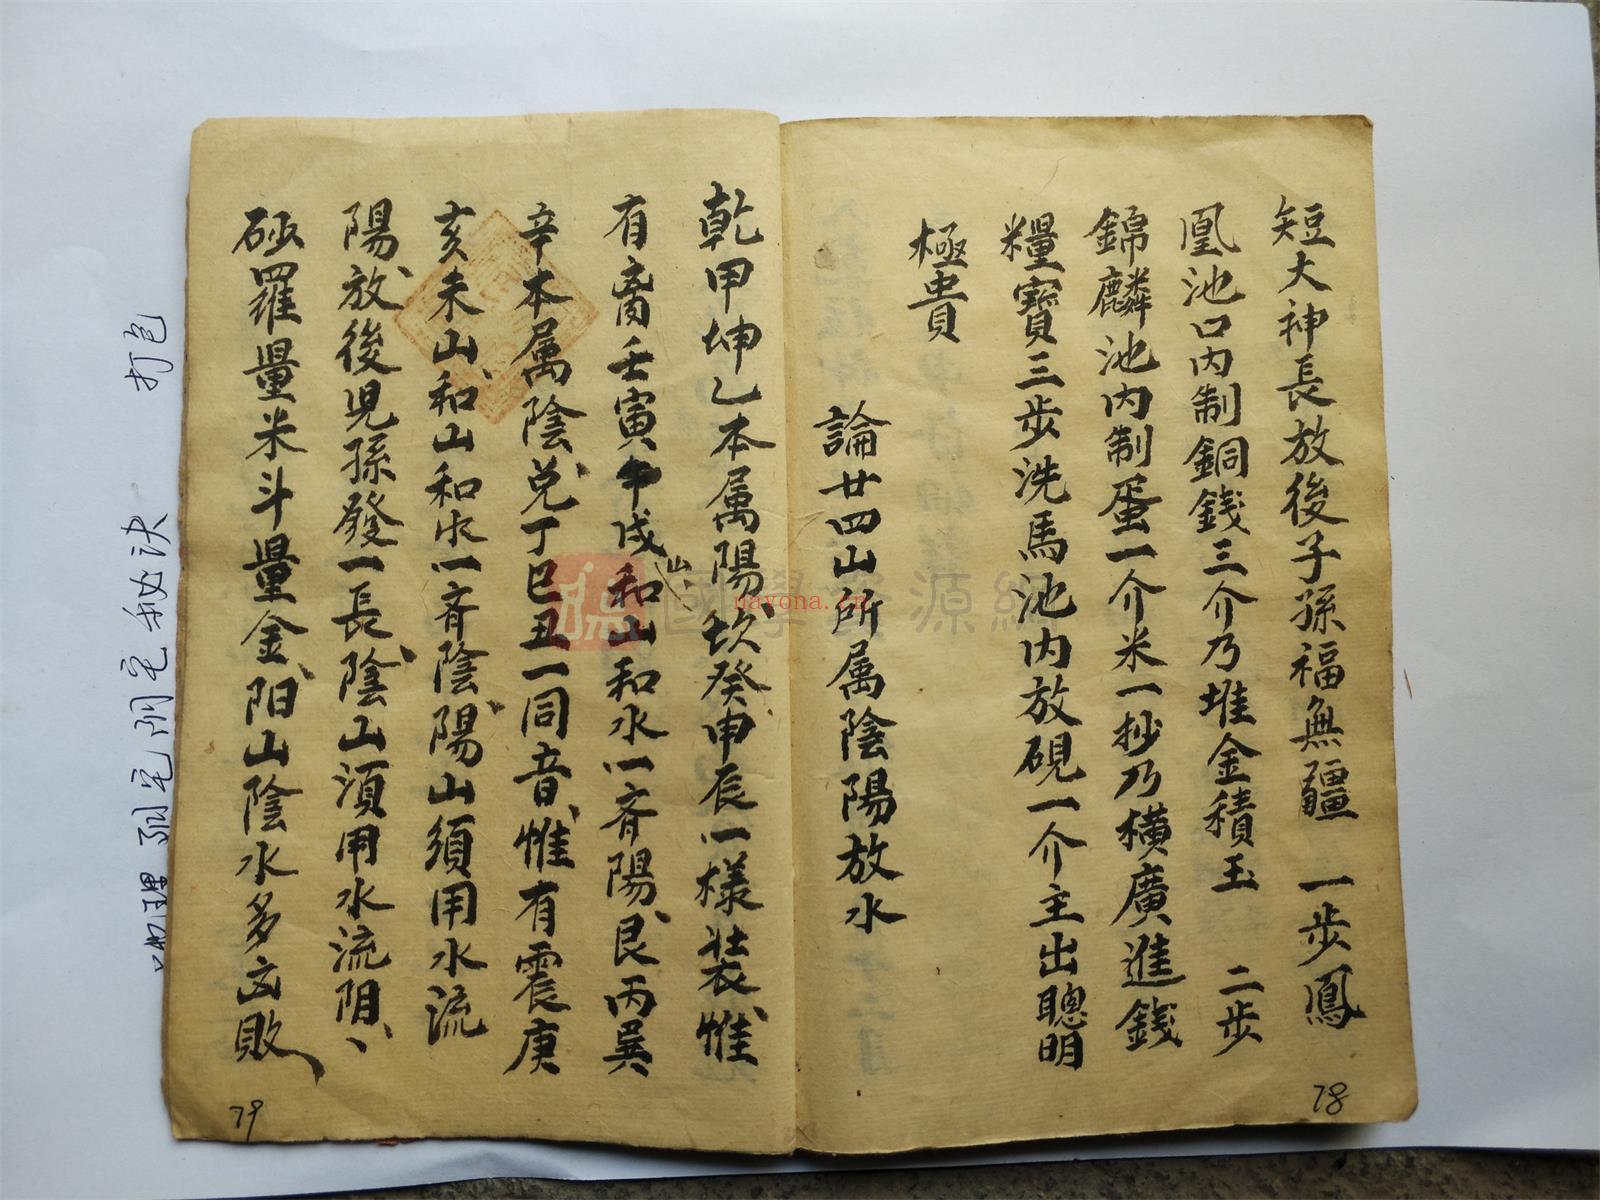 短大神長放後子孫福無疆　一步鳳
凰池口内制銅錢三介乃堆金積玉　二步
錦麟池内制蛋一介米一抄乃横廣進錢
糧寶三步洗馬池内放硯一介主出聰明
極貴
論廿四山所属陰陽放水
78
乾甲坤乙本属陽坎癸申辰一樣装惟
有离壬寅午戌山和山和水一斉陽艮丙巽
辛本属陰兑丁巳丑一同音惟有震庚
亥未山和山和水一斉陰陽山須用水流
陽放後児孫發一長陰山須用水流阴
砤羅量米斗量金阳山陰水多凶敗
79
地理阳宅阴宅秘决　打包
國學 源網
nayona.cn